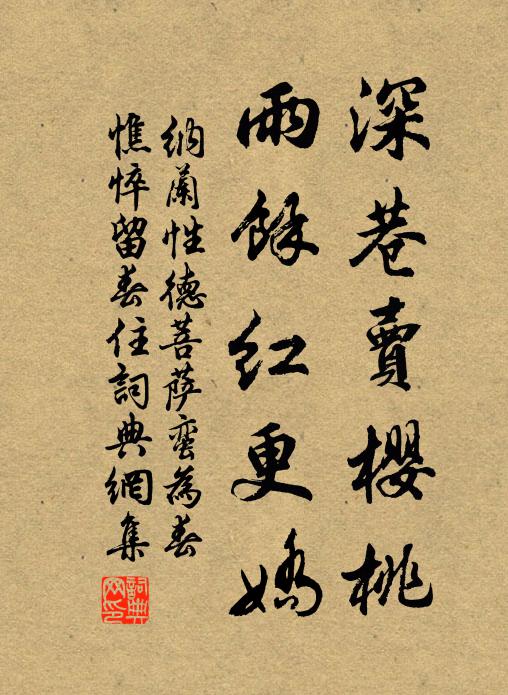 深巷賣櫻桃
雨餘紅更嬌
納蘭性德菩薩蠻為春
憔悴留春住詞典網集
詞典网印